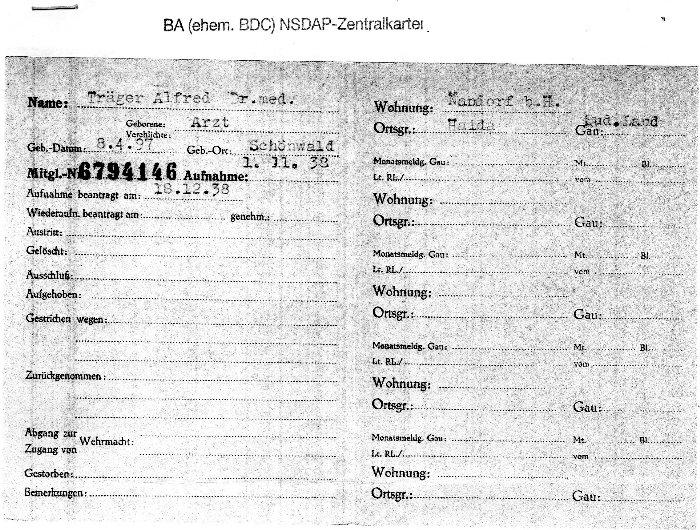 BA (ehem. BDC) NSDAP-Zentralkartei
Name: Träger Alfred Dr.med.
Geborene: Arzt
Verehlichte:
Geb.-Datum: 8.4.97 Geb.-Ort: Schönwald
Mitgl.-Nr. 6794146 Aufnahme: 1. 11. 38
Aufnahme beantragt am: 18.12.38
Wiederaufn. beantragt am: genehm.:
Austritt:
Gelöscht:
Ausschluß:
Aufgehoben:
Gestrichen wegen:
Zurückgenommen:
Abgang zur
Zugang von Wehrmacht:
Gestorben:
Bemerkungen:
Wohnung: b.H.
Ortsgr.: Haida Gau: Sud.Land
Monatsmeldg. Gau: Mt. Bl.
Lt. RL./ vom
Wohnung:
Ortsgr.: Gau:
Monatsmeldg. Gau: Mt. Bl.
Lt. RL./ vom
Wohnung:
Ortsgr.: Gau:
Monatsmeldg. Gau: Mt. Bl.
Lt. RL./ vom
Wohnung:
Ortsgr.: Gau:
Monatsmeldg. Gau: Mt. Bl.
Lt. RL./ vom
Wohnung:
Ortsgr.: Gau: